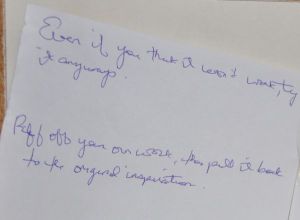 Even if you think it won't work, try
it anyways.
Riff off your own work, then pull it back
to the original inspiration.